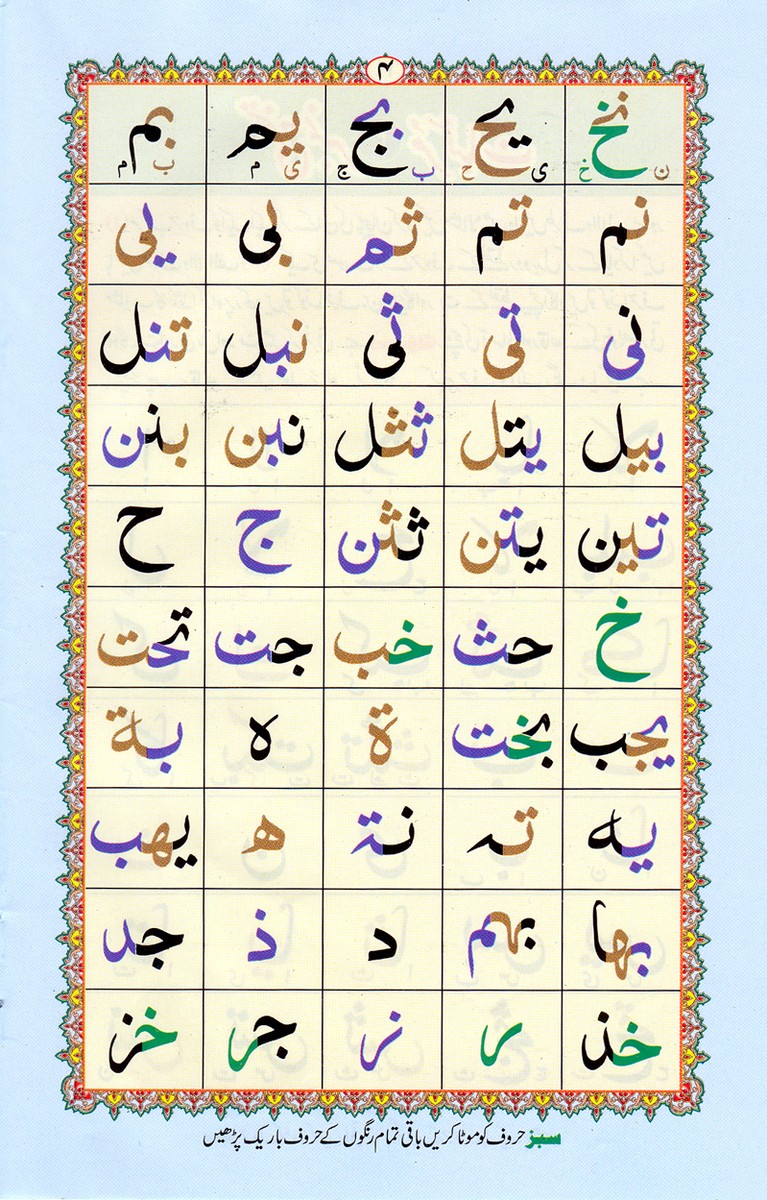 ۴
نخ یح بج یم بم
ن خ ی ح ب ج ی م ب م
نم تم ثم بی یی
نی تی ثی نبل تنل
بیل یتل ثثل نبن بنن
تین یتن ثثن ج ح
خ حث خب جت تحت
یجب بخت ة ه بة
یه تہ نة ھ یهب
بها بهم د ذ جد
خذ ر نر جر خز
سبز حروف کو موٹا کریں باقی تمام رنگوں کے حروف باریک پڑھیں